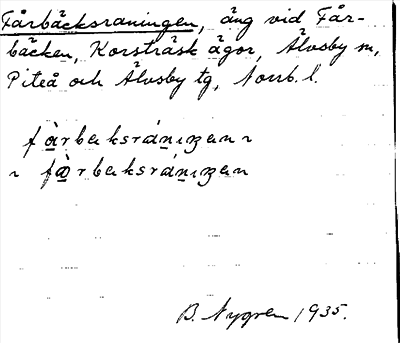 Fårbäcksraningen, äng vid Får-
bäcken, Korsträsk ägor, Älvsby sn,
Piteå och Älvsby tg, Norrb. l.
fàrbɛksránɪŋɛn ɪ
ɪ fɑ̀rbɛksránɪŋɛn
B. Nygren 1935.